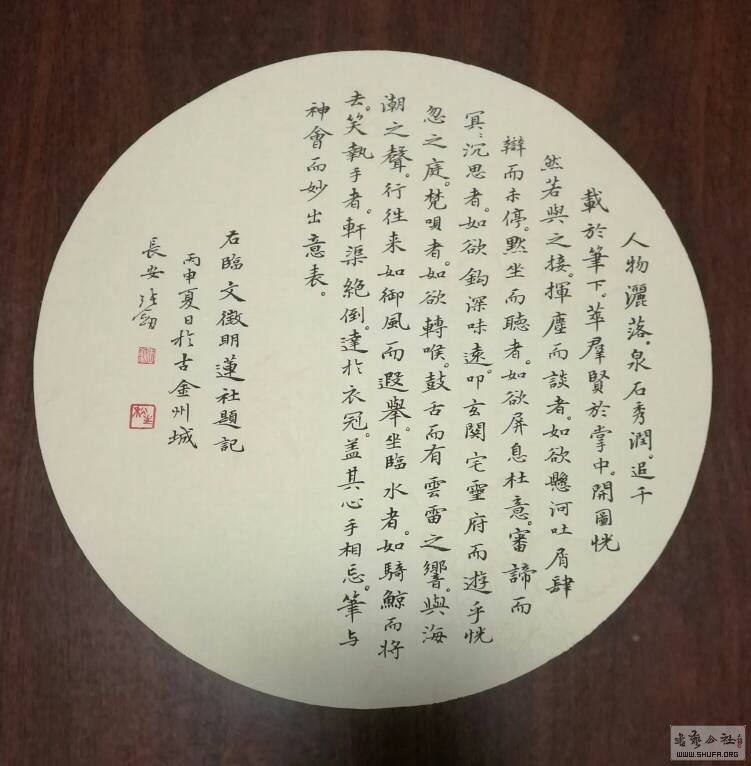 人物灑落。泉石秀潤。追千
載於筆下。萃群賢於掌中。開圖恍
然若與之接。揮麈而談者。如欲懸河吐屑肆
辯而未停。默坐而聽者。如欲屏息杜意。審諦而
冥〻沉思者。如欲鈎深味遠。叩玄関宅靈府而遊乎恍
忽之庭。梵唄者。如欲轉喉。鼓舌而有雲雷之響。與海
潮之聲。行往来如御風而遐舉。坐臨水者。如騎鯨而將
去。笑執手者。軒渠絶倒。達於衣冠。盖其心手相忘。筆与
神會而妙出意表。
右臨文徵明蓮社題記
丙申夏日於古金州城
長安
書藝公社
WWW.SHUFA.ORG